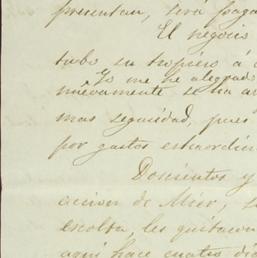 presentan, será paga
El negocio
tubo su tropiero á
Yo me he alegrado
nuevamente, se ha a
mas seguridad, pues
por gastos estraordin
Doscientos y
de Mier, s
escolta, les quitaron
aqui hace cuatro dia